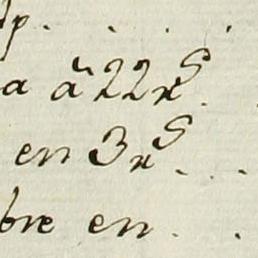 p. . . .
a à 22 rs.
en 3 rs. . .
bre en . .